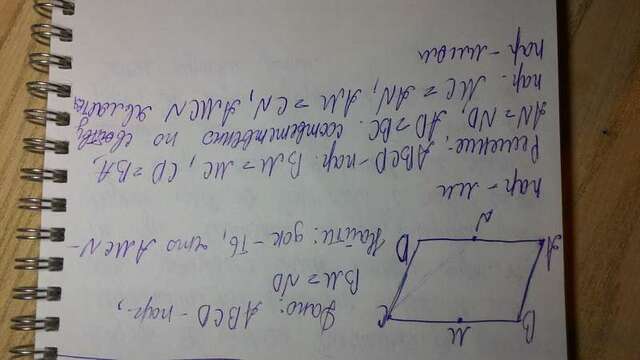 B M C
A N D
Дано: ABCD - пар.,
BM = ND
Найти: док-ть, что AMCN -
пар-мм
Решение: ABCD - пар. BM = MC, CD = BA,
AN = ND, AD = BC. соответственно по свойству
пар. MC = AN, AM = CN, AMCN является
пар-ммом